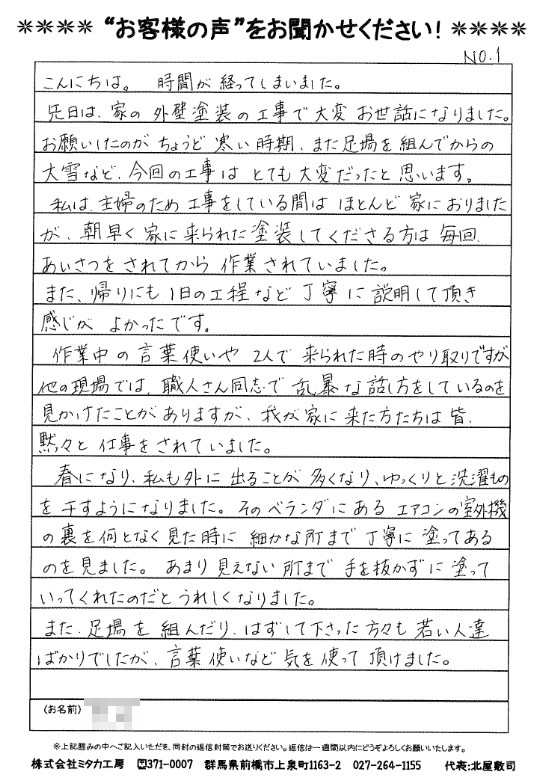 **** “お客様の声”をお聞かせください！ ****
NO.1
こんにちは。 時間が経ってしまいました。
先日は、家の外壁塗装の工事で大変お世話になりました。
お願いしたのがちょうど寒い時期、また足場を組んでからの
大雪など、今回の工事はとても大変だったと思います。
私は、主婦のため工事をしている間はほとんど家におりました
が、朝早く家に来られた塗装してくださる方は毎回、
あいさつをされてから作業されていました。
また、帰りにも1日の工程など丁寧に説明して頂き
感じがよかったです。
作業中の言葉使いや2人で来られた時のやり取りですが
他の現場では、職人さん同志で乱暴な話し方をしているのを
見かけたことがありますが、我が家に来た方たちは皆、
黙々と仕事をされていました。
春になり、私も外に出ることが多くなり、ゆっくりと洗濯もの
を干すようになりました。そのベランダにあるエアコンの室外機
の裏を何となく見た時に細かな所まで丁寧に塗ってある
のを見ました。あまり見えない所まで手を抜かずに塗って
いってくれたのだとうれしくなりました。
また、足場を組んだり、はずして下さった方々も若い人達
ばかりでしたが、言葉使いなど気を使って頂けました。
（お名前）
※上記囲みの中へご記入いただき、同封の返信封筒でお送りください。返信は一週間以内にどうぞよろしくお願いいたします。
株式会社ミタカ工房 〒371-0007 群馬県前橋市上泉町1163-2 027-264-1155 代表:北屋敷司